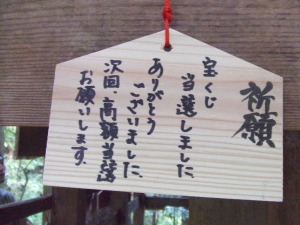 祈願
宝くじ
当選しました、
ありがとう
ございました、
次回、高額当選
お願いします。